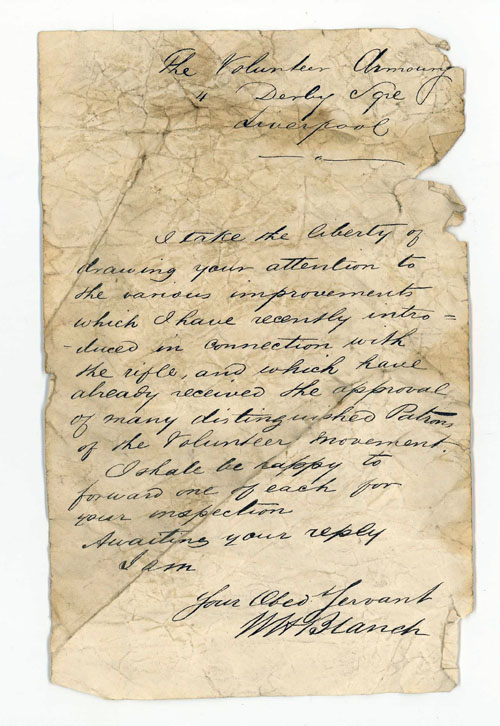 The Volunteer Armoury
4 Derby Sqre
Liverpool
I take the liberty of
drawing your attention to
the various improvements
which I have recently intro=
-duced in connection with
the rifle, and which have
already received the approval
of many distinguished Patrons
of the Volunteer Movement.
I shall be happy to
forward one of each for
your inspection
Awaiting your reply
I am
Your Obedt Servant
WH Blanch